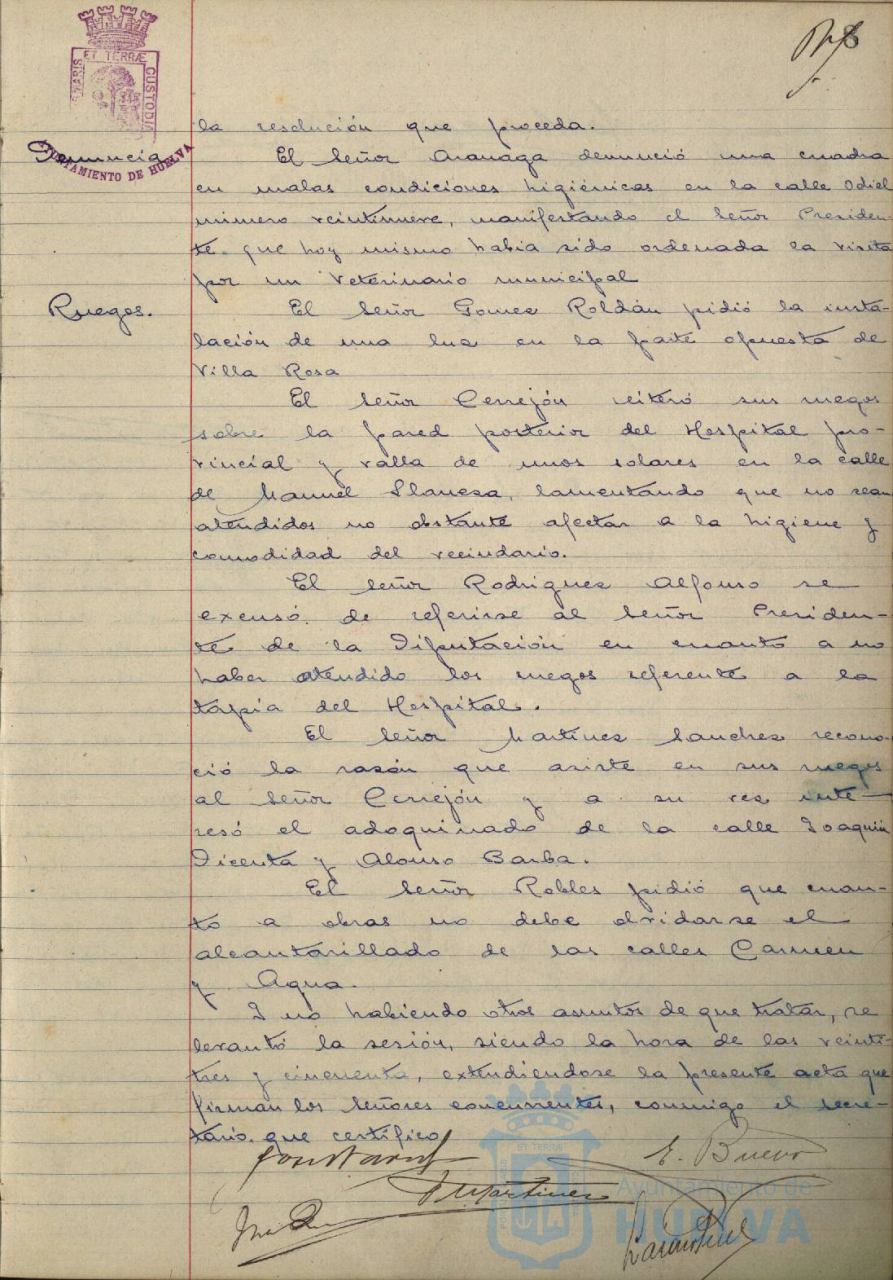 8
ET TERRÆ
CUSTODIA
AYUNTAMIENTO DE HUELVA
la resolución que proceda.
Denuncia
El Señor Aranaga denunció una cuadra
en malas condiciones higiénicas en la calle Odiel
número veintinueve, manifestando el Señor Presiden-
te que hoy mismo habia sido ordenada la visita
por un Veterinario municipal
Ruegos.
El Señor Gomez Roldán pidió la insta-
lación de una luz en la parte opuesta de
Villa Rosa
El Señor Cerrejón reiteró sus ruegos
sobre la pared posterior del Hospital pro-
vincial y valla de unos solares en la calle
de Manuel Llaneza, lamentando que no sean
atendidos no obstante afectar a la higiene y
comodidad del vecindario.
El Señor Rodriguez Alfonso se
excusó de referirse al Señor Presiden-
te de la Diputación en cuanto a no
haber atendido los ruegos referente a la
tapia del Hospital.
El Señor Martinez Sanchez recono-
ció la razón que asiste en sus ruegos
al Señor Cerrejón y a su vez inte-
resó el adoquinado de la calle Joaquin
Dicenta y Alonso Barba.
El Señor Robles pidió que cuan-
to a obras no debe olvidarse el
alcantarillado de las calles Carmen
y Agua.
Y no habiendo otros asuntos de que tratar, se
levantó la sesión, siendo la hora de las veinti-
tres y cincuenta, extendiéndose la presente acta que
firman los Señores concurrentes, conmigo el Secre-
tario que certifico
E. Bueno
F. Martinez
ET TERRÆ
Ayuntamiento de
HUELVA